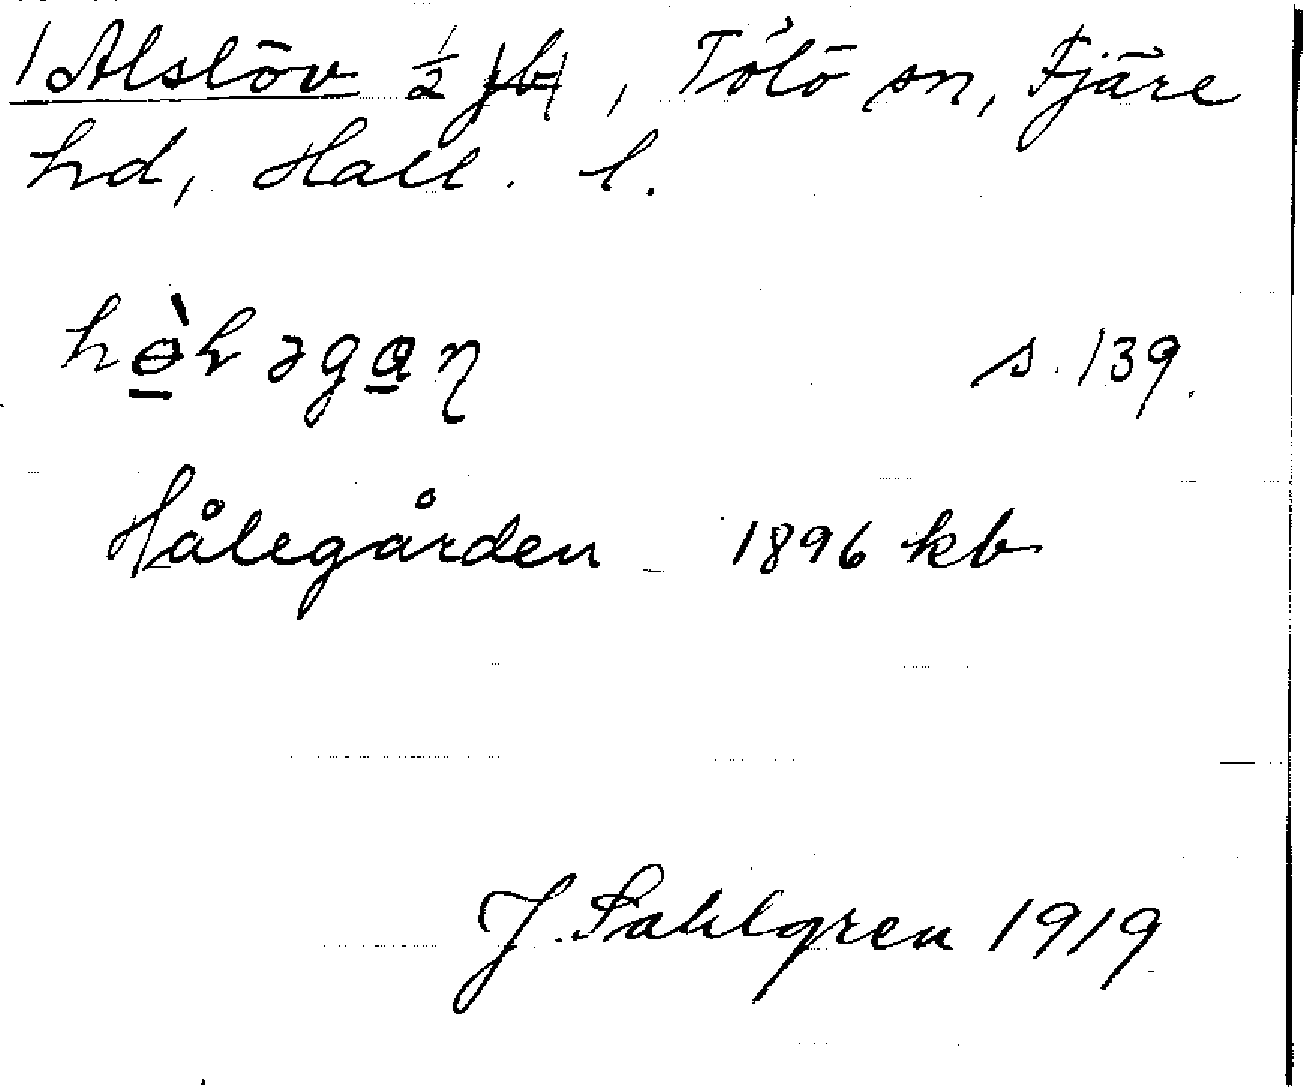 1 Alslöv ½ jb, Tölö sn, Fjäre
hd, Hall. l.
s. 139.
Hålegården 1896 kb
J. Sahlgren 1919